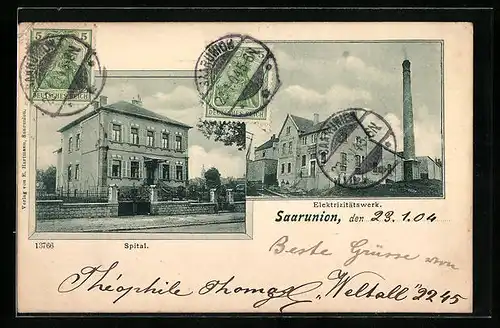 5 5
DEUTSCHES REICH
SAARUNION
Elektrizitätswerk.
Verlag von E. Hartmann, Saarunion.
13766
Spital.
Saarunion, den 23.1.04
Beste Grüsse von
Théophile Thomas "Weltall" 2245